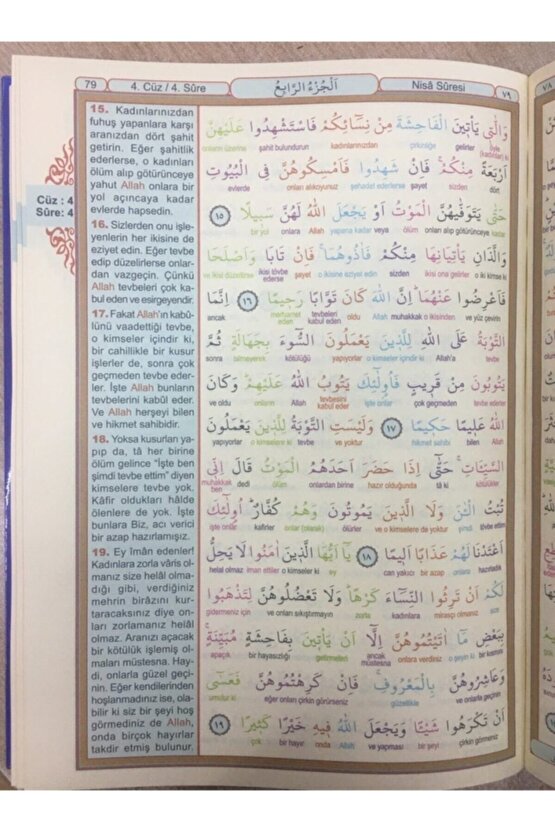 79
4. Cüz / 4. Sûre
اَلْجُزْءُ الرَّابِعُ
Nisâ Sûresi
٧٩
Cüz : 4
Sûre: 4
15. Kadınlarınızdan
fuhuş yapanlara karşı
aranızdan dört şahit
getirin. Eğer şahitlik
ederlerse, o kadınları
ölüm alıp götürünceye
yahut Allah onlara bir
yol açıncaya kadar
evlerde hapsedin.
16. Sizlerden onu işle-
yenlerin her ikisine de
eziyet edin. Eğer tevbe
edip düzelirlerse onlar-
dan vazgeçin. Çünkü
Allah tevbeleri çok ka-
bul eden ve esirgeyendir.
17. Fakat Allah'ın kabu-
lünü vaadettiği tevbe,
o kimseler içindir ki,
bir cahillikle bir kusur
işlerler de, sonra çok
geçmeden tevbe eder-
ler. İşte Allah bunların
tevbelerini kabûl eder.
Ve Allah herşeyi bilen
ve hikmet sahibidir.
18. Yoksa kusurları ya-
pıp da, tâ her birine
ölüm gelince "İşte ben
şimdi tevbe ettim" diyen
kimselere tevbe yok.
Kâfir oldukları hâlde
ölenlere de yok. İşte
bunlara Biz, acı verici
bir azap hazırlamışız.
19. Ey îman edenler!
Kadınlara zorla vâris ol-
manız size helâl olma-
dığı gibi, verdiğiniz
mehrin birâzını kur-
taracaksınız diye on-
ları zorlamanız helâl
olmaz. Aranızı açacak
bir kötülük işlemiş ol-
maları müstesna. Hay-
di, onlarla güzel geçi-
nin. Eğer kendilerinden
hoşlanmadınız ise, ola-
bilir ki siz bir şeyi hoş
görmediniz de Allah,
onda birçok hayırlar
takdir etmiş bulunur.
وَالّٰت۪ي يَأْت۪ينَ الْفَاحِشَةَ مِنْ نِسَٓائِكُمْ فَاسْتَشْهِدُوا عَلَيْهِنَّ
onların üzerine şahit bulundurun kadınlarınızdan çirkinliğe gelirler
اَرْبَعَةً مِنْكُمْۚ فَاِنْ شَهِدُوا فَاَمْسِكُوهُنَّ فِي الْبُيُوتِ
evlerde onları alıkoyunuz şehadet ederlerse şayet sizden dört
حَتّٰى يَتَوَفّٰيهُنَّ الْمَوْتُ اَوْ يَجْعَلَ اللّٰهُ لَهُنَّ سَب۪يلًا ﴿١٥﴾
bir yol onlara Allah yapana kadar veya ölüm onları alıp götürünceye kadar
وَالَّذَانِ يَأْتِيَانِهَا مِنْكُمْ فَاٰذُوهُمَاۚ فَاِنْ تَابَا وَاَصْلَحَا
ve ikisi düzelirse ikisi tövbe ederse şayet o ikisine eziyet edin sizden ikisi ona gelirler o iki kimse ki
فَاَعْرِضُوا عَنْهُمَاۜ اِنَّ اللّٰهَ كَانَ تَوَّابًا رَح۪يمًا ﴿١٦﴾ اِنَّمَا
ancak merhamet eden tevbeleri kabul eden oldu Allah muhakkak o ikisinden ve yüz çevirin
التَّوْبَةُ عَلَى اللّٰهِ لِلَّذ۪ينَ يَعْمَلُونَ السُّٓوءَ بِجَهَالَةٍ ثُمَّ
sonra bilmeyerek kötülüğü yapıyorlar o kimseler içindir ki Allah'a tevbe
يَتُوبُونَ مِنْ قَر۪يبٍ فَاُولٰٓئِكَ يَتُوبُ اللّٰهُ عَلَيْهِمْۜ وَكَانَ
ve oldu onların Allah tevbesini kabul eder işte onlar çok geçmeden tevbe ederler
اللّٰهُ عَل۪يمًا حَك۪يمًا ﴿١٧﴾ وَلَيْسَتِ التَّوْبَةُ لِلَّذ۪ينَ يَعْمَلُونَ
yapıyorlar o kimselere ki tevbe ve yoktur hikmet sahibi bilen Allah
السَّيِّـَٔاتِۚ حَتّٰٓى اِذَا حَضَرَ اَحَدَهُمُ الْمَوْتُ قَالَ اِنّ۪ي
muhakkak ben dedi ölüm onlardan birine hazır olduğunda tâ ki kötülükler
تُبْتُ الْـٰٔنَ وَلَا الَّذ۪ينَ يَمُوتُونَ وَهُمْ كُفَّارٌۜ اُولٰٓئِكَ
işte onlar kafirler onlar (olarak) ölürler ve o kimselere de yoktur şimdi tövbe ettim
اَعْتَدْنَا لَهُمْ عَذَابًا اَل۪يمًا ﴿١٨﴾ يَٓا اَيُّهَا الَّذ۪ينَ اٰمَنُوا لَا يَحِلُّ
helal olmaz iman ettiler o kimseler ki ey can yakıcı bir azap onlara hazırladık
لَكُمْ اَنْ تَرِثُوا النِّسَٓاءَ كَرْهًاۜ وَلَا تَعْضُلُوهُنَّ لِتَذْهَبُوا
gidermeniz için ve onları sıkıştırmayın zorla kadınlara mirasçı olmanız size
بِبَعْضِ مَٓا اٰتَيْتُمُوهُنَّ اِلَّٓا اَنْ يَأْت۪ينَ بِفَاحِشَةٍ مُبَيِّنَةٍۚ
apaçık bir hayasızlığı getirmeleri ancak müstesna onlara verdiniz o şeyin ki bir kısmını
وَعَاشِرُوهُنَّ بِالْمَعْرُوفِۚ فَاِنْ كَرِهْتُمُوهُنَّ فَعَسٰٓى
umulur ki eğer onları çirkin görürseniz güzellikle ve onlarla geçinin
اَنْ تَكْرَهُوا شَيْـًٔا وَيَجْعَلَ اللّٰهُ ف۪يهِ خَيْرًا كَث۪يرًا ﴿١٩﴾
çok bir hayır onda Allah ve yapması bir şeyi çirkin görmeniz